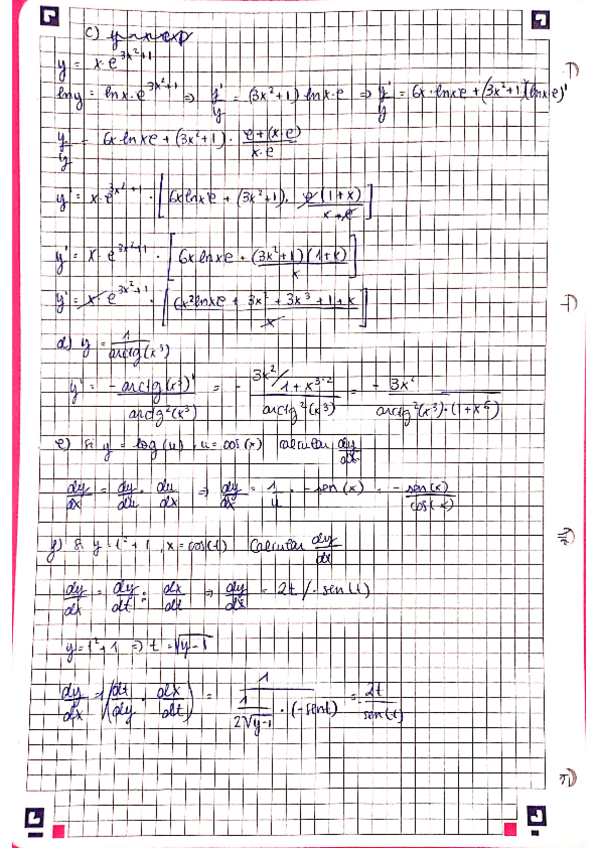 c) y = x · exp
y = x · e^{3x²+1}
ln y = ln x · e^{3x²+1} ⇒ y'/y = (3x²+1) ln x · e ⇒ y'/y = 6x · ln xe + (3x²+1)(ln x·e)'
y'/y = 6x · ln xe + (3x²+1) · (e+(x·e))/(x·e)
y' = x·e^{3x²+1} · [6x ln xe + (3x²+1) · e(1+x)/(x·e)]
y' = x · e^{3x²+1} · [6x ln xe + (3x²+1)(1+x)/x]
y' = x · e^{3x²+1} · [(6x² ln xe + 3x² + 3x³ + 1 + x)/x]
d) y = 1/arctg(x³)
y' = -arctg(x³)'/arctg²(x³) = - (3x²/1+x^{3·2})/arctg²(x³) = -3x²/(arctg²(x³)·(1+x⁶))
e) Si y = log(u), u = cos(x) calcular dy/dx
dy/dx = dy/du · du/dx ⇒ dy/dx = 1/u · -sen(x) = -sen(x)/cos(x)
f) Si y = t²+1, x = cos(t) Calcular dy/dx
dy/dx = dy/dt : dx/dt ⇒ dy/dx = 2t / -sen(t)
y = t²+1 ⇒ t = √(y-1)
dy/dx = 1/(dt/dy · dx/dt) = 1/(1/(2√(y-1)) · (-sen t)) = -2t/sen(t)